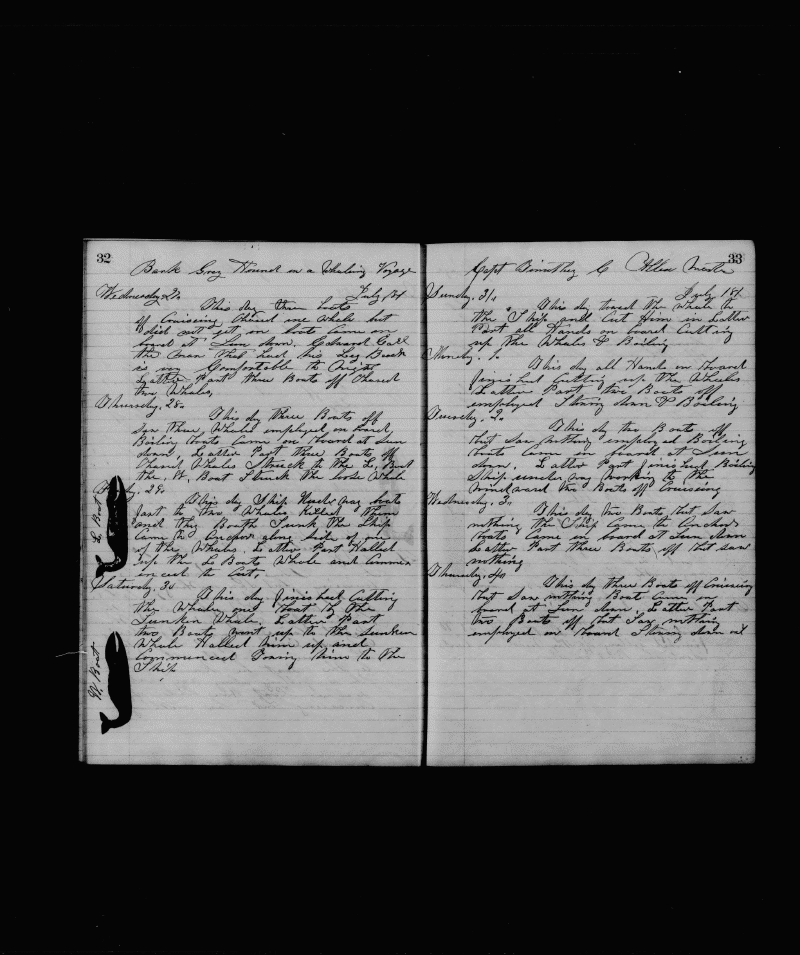 32
Bark Grey Hound on a Whaling Voyage
Wednesday, 27. July 18
This day three boats
off Cruising Chased one Whale but
did not get on boats Came on
board at Sun down. Edward Call
the man that had his Leg Broak
is in Comfortable to Night
Latter Part three Boats off Chased
two Whales,
Thursday, 28.
This day three Boats off
saw three Whales employed on board
Boiling boats Came on board at Sun
down, Latter Part three Boats off
Chased Whales Struck to the L, Boat
the, W, Boat Struck the loose Whale
29.
This day Ship under way boats
fast to two Whales Killed them
and they Booth Sunk the Ship
Came to Anchor along side of one
of the Whales. Latter Part Halled
up the L Boats Whale and Commen
to Cut,
L Boat
Saturday, 30
This day finished Cutting
the Whale, one boat to the
Sunken Whale, Latter Part
two Boats went up to the Sunken
Whale Halled him up and
Commenced Towing him to the
Ship
W. Boat
33
Capt Timothy C Allen Master
Sunday, 31, July 18
This day towed the Whale to
the Ship and Cut him in Latter
Part all Hands on board Cutting
up the Whale & Boiling
Monday, 1.
This day all Hands on board
finished Cutting up the Whales
Latter Part two Boats off
employed Stowing down & Boiling
Tuesday, 2.
This day two Boats off
but saw nothing employed Boiling
boats Came on board at Sun
down. Latter Part finished Boiling
Ship under way working to the
windward two Boats off Cruising
Wednesday, 3,
This day two Boats but Saw
nothing the Ship Came to Anchor
boats Came on board at Sun down
Latter Part three Boats off but saw
nothing
Thursday, 4
This day three Boats off Cruising
but Saw nothing Boats Came on
board at Sun down, Latter Part
two Boats off but Saw nothing
employed on board Stowing down oil